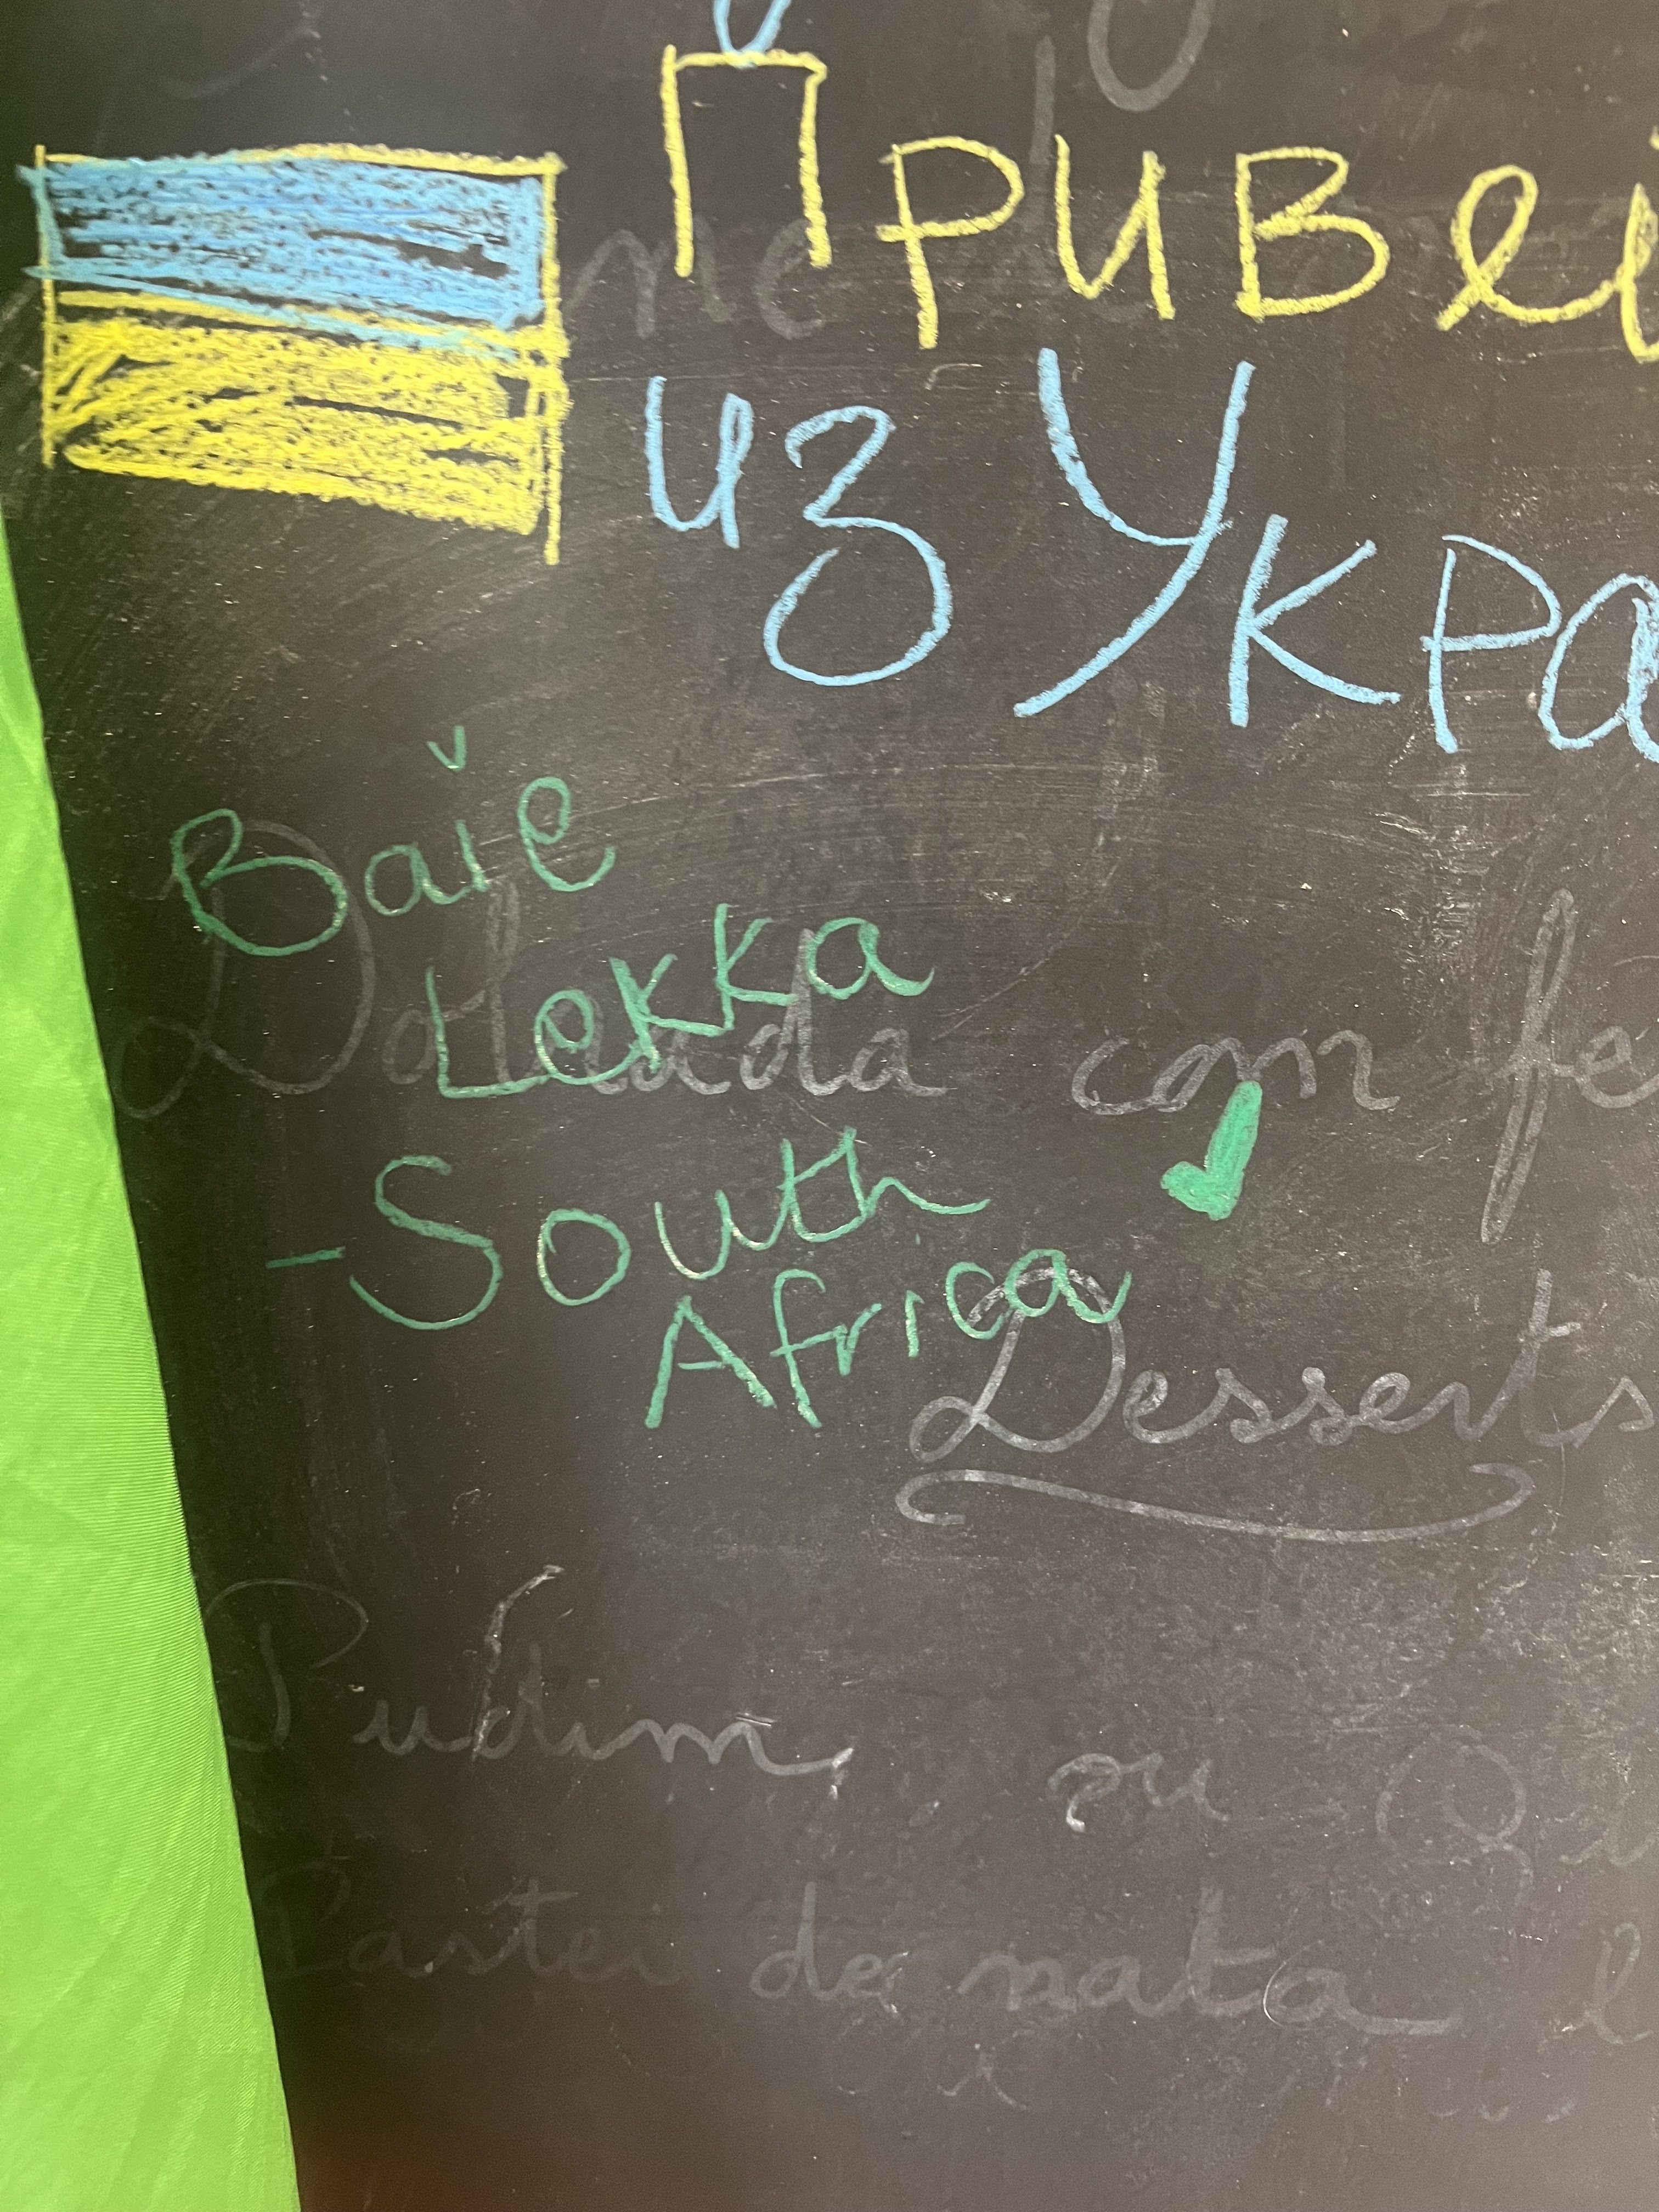 Привет
из Укра
Baiĕ
Lekka
-South
Africa
com fe
Desserts
Pudim, ou
Pastei de nata